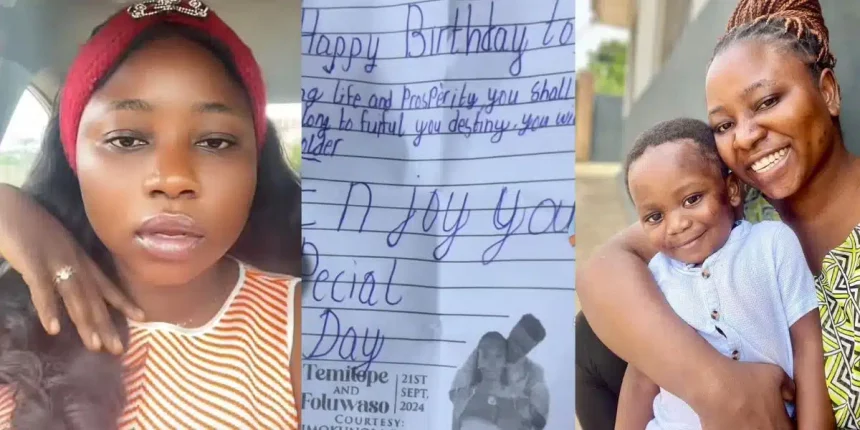 Happy Birthday to
life and Prosperity you shall
long to fuful you destiny. you
older
Enjoy
Special
Day
Temitope
AND
Foluwaso
COURTESY:
21ST
SEPT,
2024